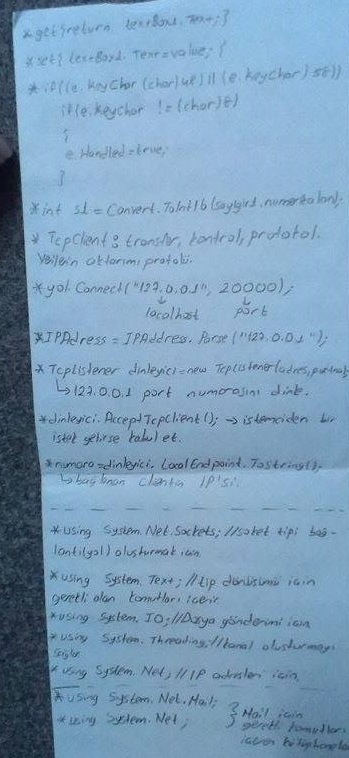 * get{return textBox1.Text;}
* set{ textBox1.Text=value; {
* if((e.KeyChar (char)48) || (e.KeyChar) 58))
if(e.KeyChar != (char)8)
{
e.Handled=true;
}
* int s1 = Convert.ToInt16(
* TcpClient: transfer, kontrol, protokol.
Verilerin aktarımı protokolü.
* yol.Connect("127.0.0.1", 20000);
localhost port
* IPAdress = IPAddress.Parse("127.0.0.1");
* TcpListener dinleyici=new TcpListener(adres,portno);
↳127.0.0.1 port numarasını dinle.
* dinleyici.AcceptTcpClient(); → istemciden bir
istek gelirse kabul et.
* numara=dinleyici.LocalEndpoint.ToString();
↳bağlanan clientın IP'si.
* using System.Net.Sockets; //soket tipi bağ-
lantı(yol) oluşturmak için
* using System.Text; //tip dönüşümü için
gerekli olan komutları içerir
* using System.IO; //Dosya gönderimi için
* using System.Threading; //kanal oluşturmayı
sağlar
* using System.Net; //IP adresleri için
* using System.Net.Mail; } Mail için
* using System.Net; gerekli komutları
içeren kütüphaneler